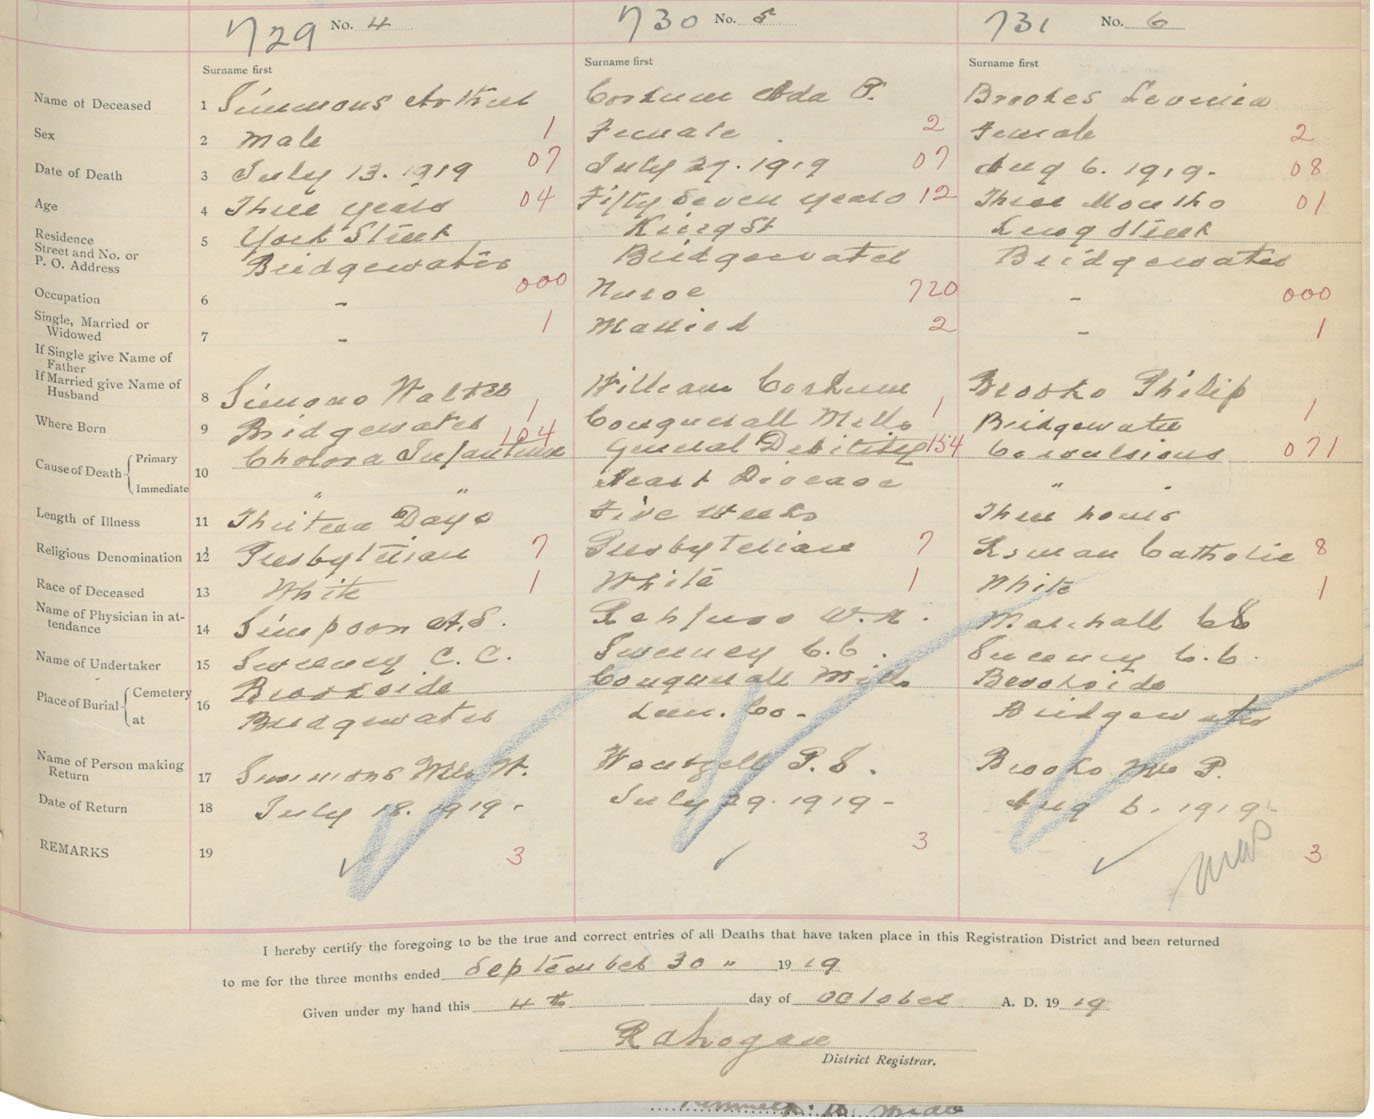 729 No. 4 730 No. 5 731 No. 6
Surname first Surname first Surname first
Name of Deceased 1 Simmons Arthur Corkum Ada P. Brookes Levenia
Sex 2 Male 1 Female 2 Female 2
Date of Death 3 July 13. 1919 07 July 27. 1919 07 Aug 6. 1919. 08
Age 4 Three years 04 Fifty Seven years 12 Three Months 01
Residence 5 York Street King St Long Street
Street and No. or
P. O. Address Bridgewater Bridgewater Bridgewater
Occupation 6 - 000 Nurse 720 - 000
Single, Married or
Widowed 7 - 1 Married 2 - 1
If Single give Name of
Father
If Married give Name of
Husband 8 Simons Walter William Corkum Brooks Philip
Where Born 9 Bridgewater 1 Conquerall Mills 1 Bridgewater 1
Cause of Death Primary 10 Cholora Infantum 104 General Debility 154 Convulsions 071
Immediate " " Heart Disease "
Length of Illness 11 Thirteen Days Five weeks Three hours
Religious Denomination 12 Presbyterian 7 Presbyterian 7 Roman Catholic 8
Race of Deceased 13 White 1 White 1 White 1
Name of Physician in at-
tendance 14 Simpson A.S. Rehfuss W.N. Marshall
Name of Undertaker 15 Sweeney C.C. Sweeney C.C. Sweeney C.C.
Place of Burial Cemetery 16 Brookside Conquerall Mills Brookside
at Bridgewater Lun. Co. Bridgewater
Name of Person making
Return 17 Simmons Mrs W. Wentzell P.S. Brooks Mrs P.
Date of Return 18 July 18. 1919- July 29. 1919- Aug 6. 1919-
REMARKS 19 3 3 3
I hereby certify the foregoing to be the true and correct entries of all Deaths that have taken place in this Registration District and been returned
to me for the three months ended September 30 " 1919
Given under my hand this 4th day of October A. D. 1919
District Registrar.